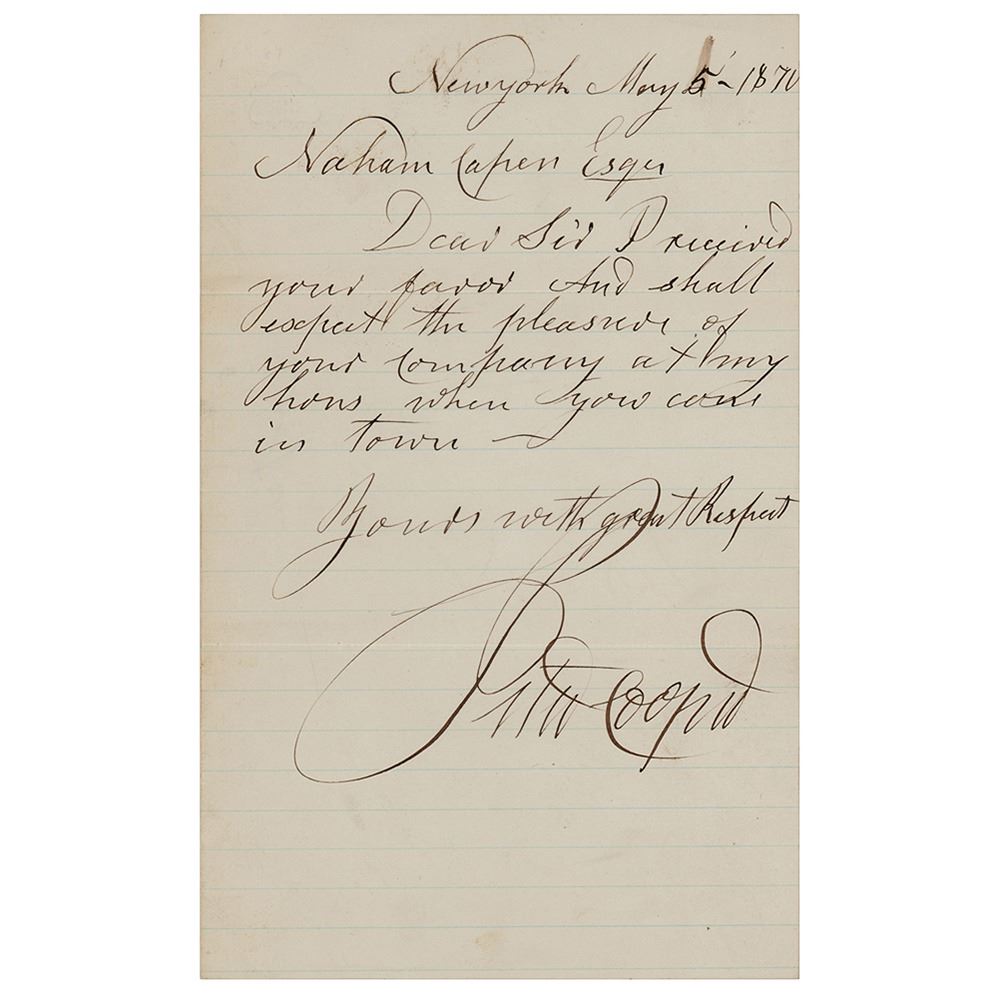 Newyork May 5 - 1870
Naham Capen Esqr
Dear Sir I received
your favor And shall
expect the pleasure of
your Company at my
hous when you come
in Town —
Yours with great Respect
Peter Cooper